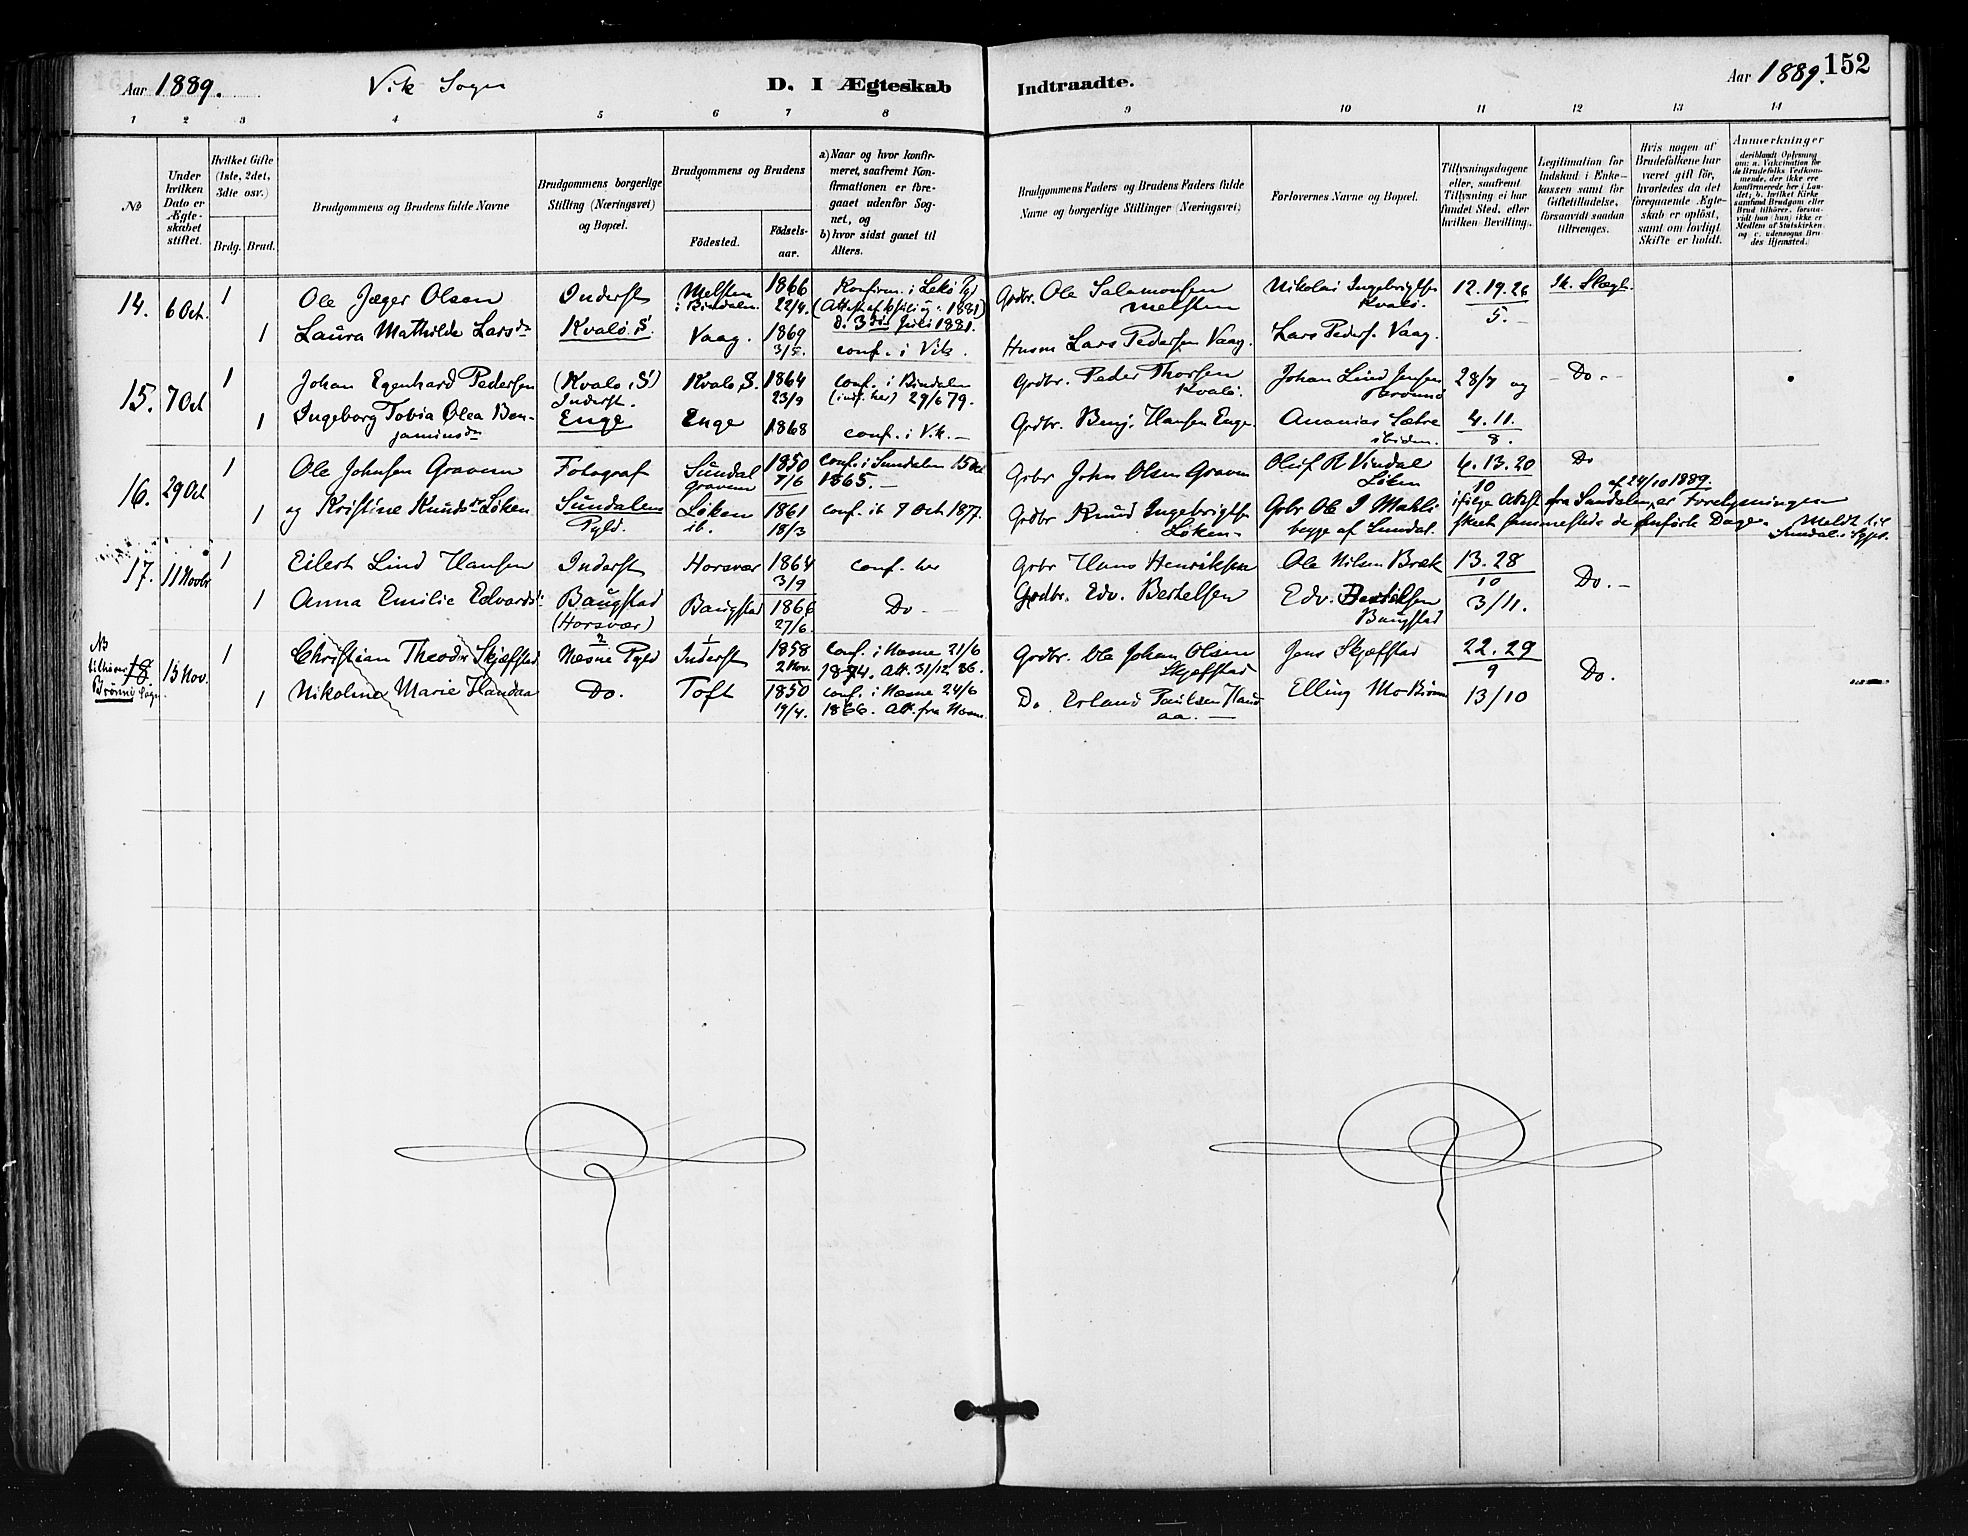 Aar 1889. Vik Sogn D. I Ægteskab Indtraadte. Aar 1889. 152
1 2 3 4 5 6 7 8 9 10 11 12 13 14
№
Under hvilken Dato er Ægteskabet stiftet.
Hvilket Gifte (1ste, 2det, 3die osv.)
Brdg. Brud.
Brudgommens og Brudens fulde Navne
Brudgommens borgerlige Stilling (Næringsvei) og Bopæl.
Brudgommens og Brudens
Födested. Födselsaar.
a) Naar og hvor konfirmeret, saafremt Konfirmationen er foregaaet udenför Sognet, og
b) hvor sidst gaaet til Alters.
Brudgommens Faders og Brudens Faders fulde Navne og borgerlige Stillinger (Næringsvei)
Forlovernes Navne og Bopæl.
Tillysningsdagene eller, saafremt Tillysning ei har fundet Sted, efter hvilken Bevilling.
Legitimation for Indskud i Enkekassen samt for Giftetilladelse, forsaavidt saadan tiltrænges.
Hvis nogen af Brudefolkene har været gift för, hvorledes da det foregaaende Ægteskab er oplöst, samt om lovligt Skifte er holdt.
Anmærkninger
deriblandt Oplysning om: a. Vakcination for de Brudefolks Vedkommende, der ikke ere konfirmerede her i Landet; b. hvilket Kirkesamfund Brudgom eller Brud tilhörer, forsaavidt han (hun) ikke er Medlem af Statskirken, og c. udensogns Brudes Hjemsted.
14. 6 Oct. 1 Ole Jæger Olsen Inderst Melsten i Bindalen 1866 22/4. Konfirm. i Lekø Pgd
d. 3die Juli 1881.
Grdbr. Ole Salamonsen Melsten Nikolai Ingebrigtsen Kvalø. 12.19.26 5.
1 Laura Mathilde Larsdr Kvalø S. Vaag. 1869 conf. i Vik. Husm Lars Pedersen Vaag. Lars Peders. Vaag.
15. 7 Oct 1 Johan Egenhard Pedersen (Kvalø, S) Inderst. Kvalø, S. 1864 23/9 conf. i Bindalen 29/6 79. Grdbr. Peder Thorsen Kvalø. Johan Lind Jensen 28/7 og Do.
1 Ingeborg Tobia Olea Benjaminsdr Enge Enge 1868 conf. i Vik. Grdbr. Benj. Hansen Enge Ananias Sætre ibidem. 4.11. 8.
16. 29 Oct 1 Ole Johnsen Gravem Fotograf Sundal Gravem 1850 7/6 conf. i Sundalen 15 Oct 1865. Grbr John Olsen Gravem Oluf R Vindal Løken 6.13.20 10 Do
1 og Kristine Knudsdr Løken Sundalens Pgld. Løken ib. 1861 18/3 conf. ib 7 Oct 1877. Grdbr Knud Ingebrigtsen Løken Grbr Ole I Mahli begge af Sundal.
ifølge Attest fra Sundalen, af 24/10 1889. er Forelysningen
skeet sammesteds de anførte Dage. Meldt til Sundal
17. 11 Novbr 1 Eilert Lind Hansen Inderst Horsvær 1864 3/9 conf. her Grbr Hans Henriksen Ole Nilsen Bræk 13.28 10 Do.
1 Anna Emilie Edvardsd. Baugstad (Horsvær) Baugstad 1866 27/6. Do Grdbr. Edv. Bertelsen Edv. Bertelsen Baugstad 3/11.
NB tilhører Brønnø Sogn 18. 15 Nov. 1 Christian Theodor Skjæfstad Næsne Pgld Inderst 1858 2 Nov. conf. i Næsne 21/6 1874. Att. 31/12 86. Grdbr. Ole Johan Olsen Skjæfstad Jens Skjæfstad 22.29 9 Do.
1 Nikoline Marie Handaa Do. Toft 1850 19/4. conf. i Næsne 24/6 1866. Att. fra Næsne. Do. Erland Paulsen Handaa. Elling Mo 13/10